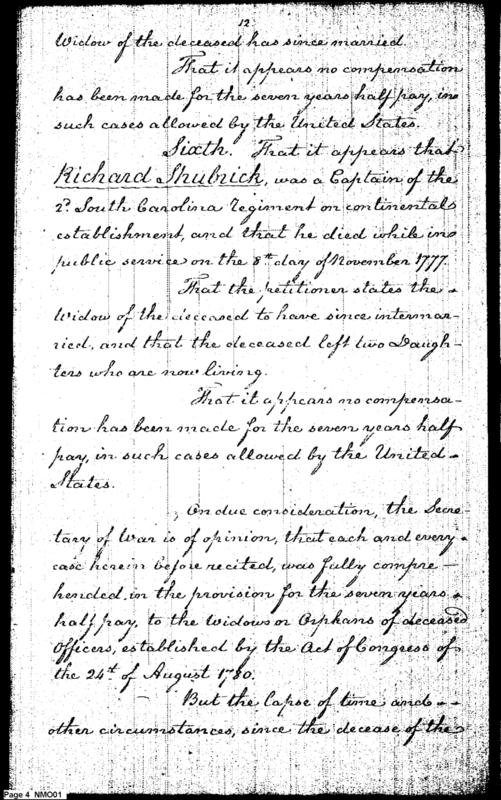 12
Widow of the deceased has since married.
That it appears no compensation
has been made for the seven years half pay, in
such cases allowed by the United States.
Sixth. That it appears that
Richard Shubrick, was a Captain of the
2d. South Carolina Regiment on continental
establishment, and that he died while in
public service on the 8th day of November 1777.
That the petitioner states the
Widow of the deceased to have since intermar-
ried, and that the deceased left two Daugh-
ters who are now living.
That it appears no compensa-
tion has been made for the seven years half
pay, in such cases allowed by the United
States.
On due consideration, the Secre-
tary of War is of opinion, that each and every
case herein before recited, was fully compre-
hended in the provision for the seven years
half pay, to the Widows or Orphans of deceased
Officers, established by the Act of Congress of
the 24th of August 1780.
But the lapse of time and
other circumstances, since the decease of the
Page 4 NMO01